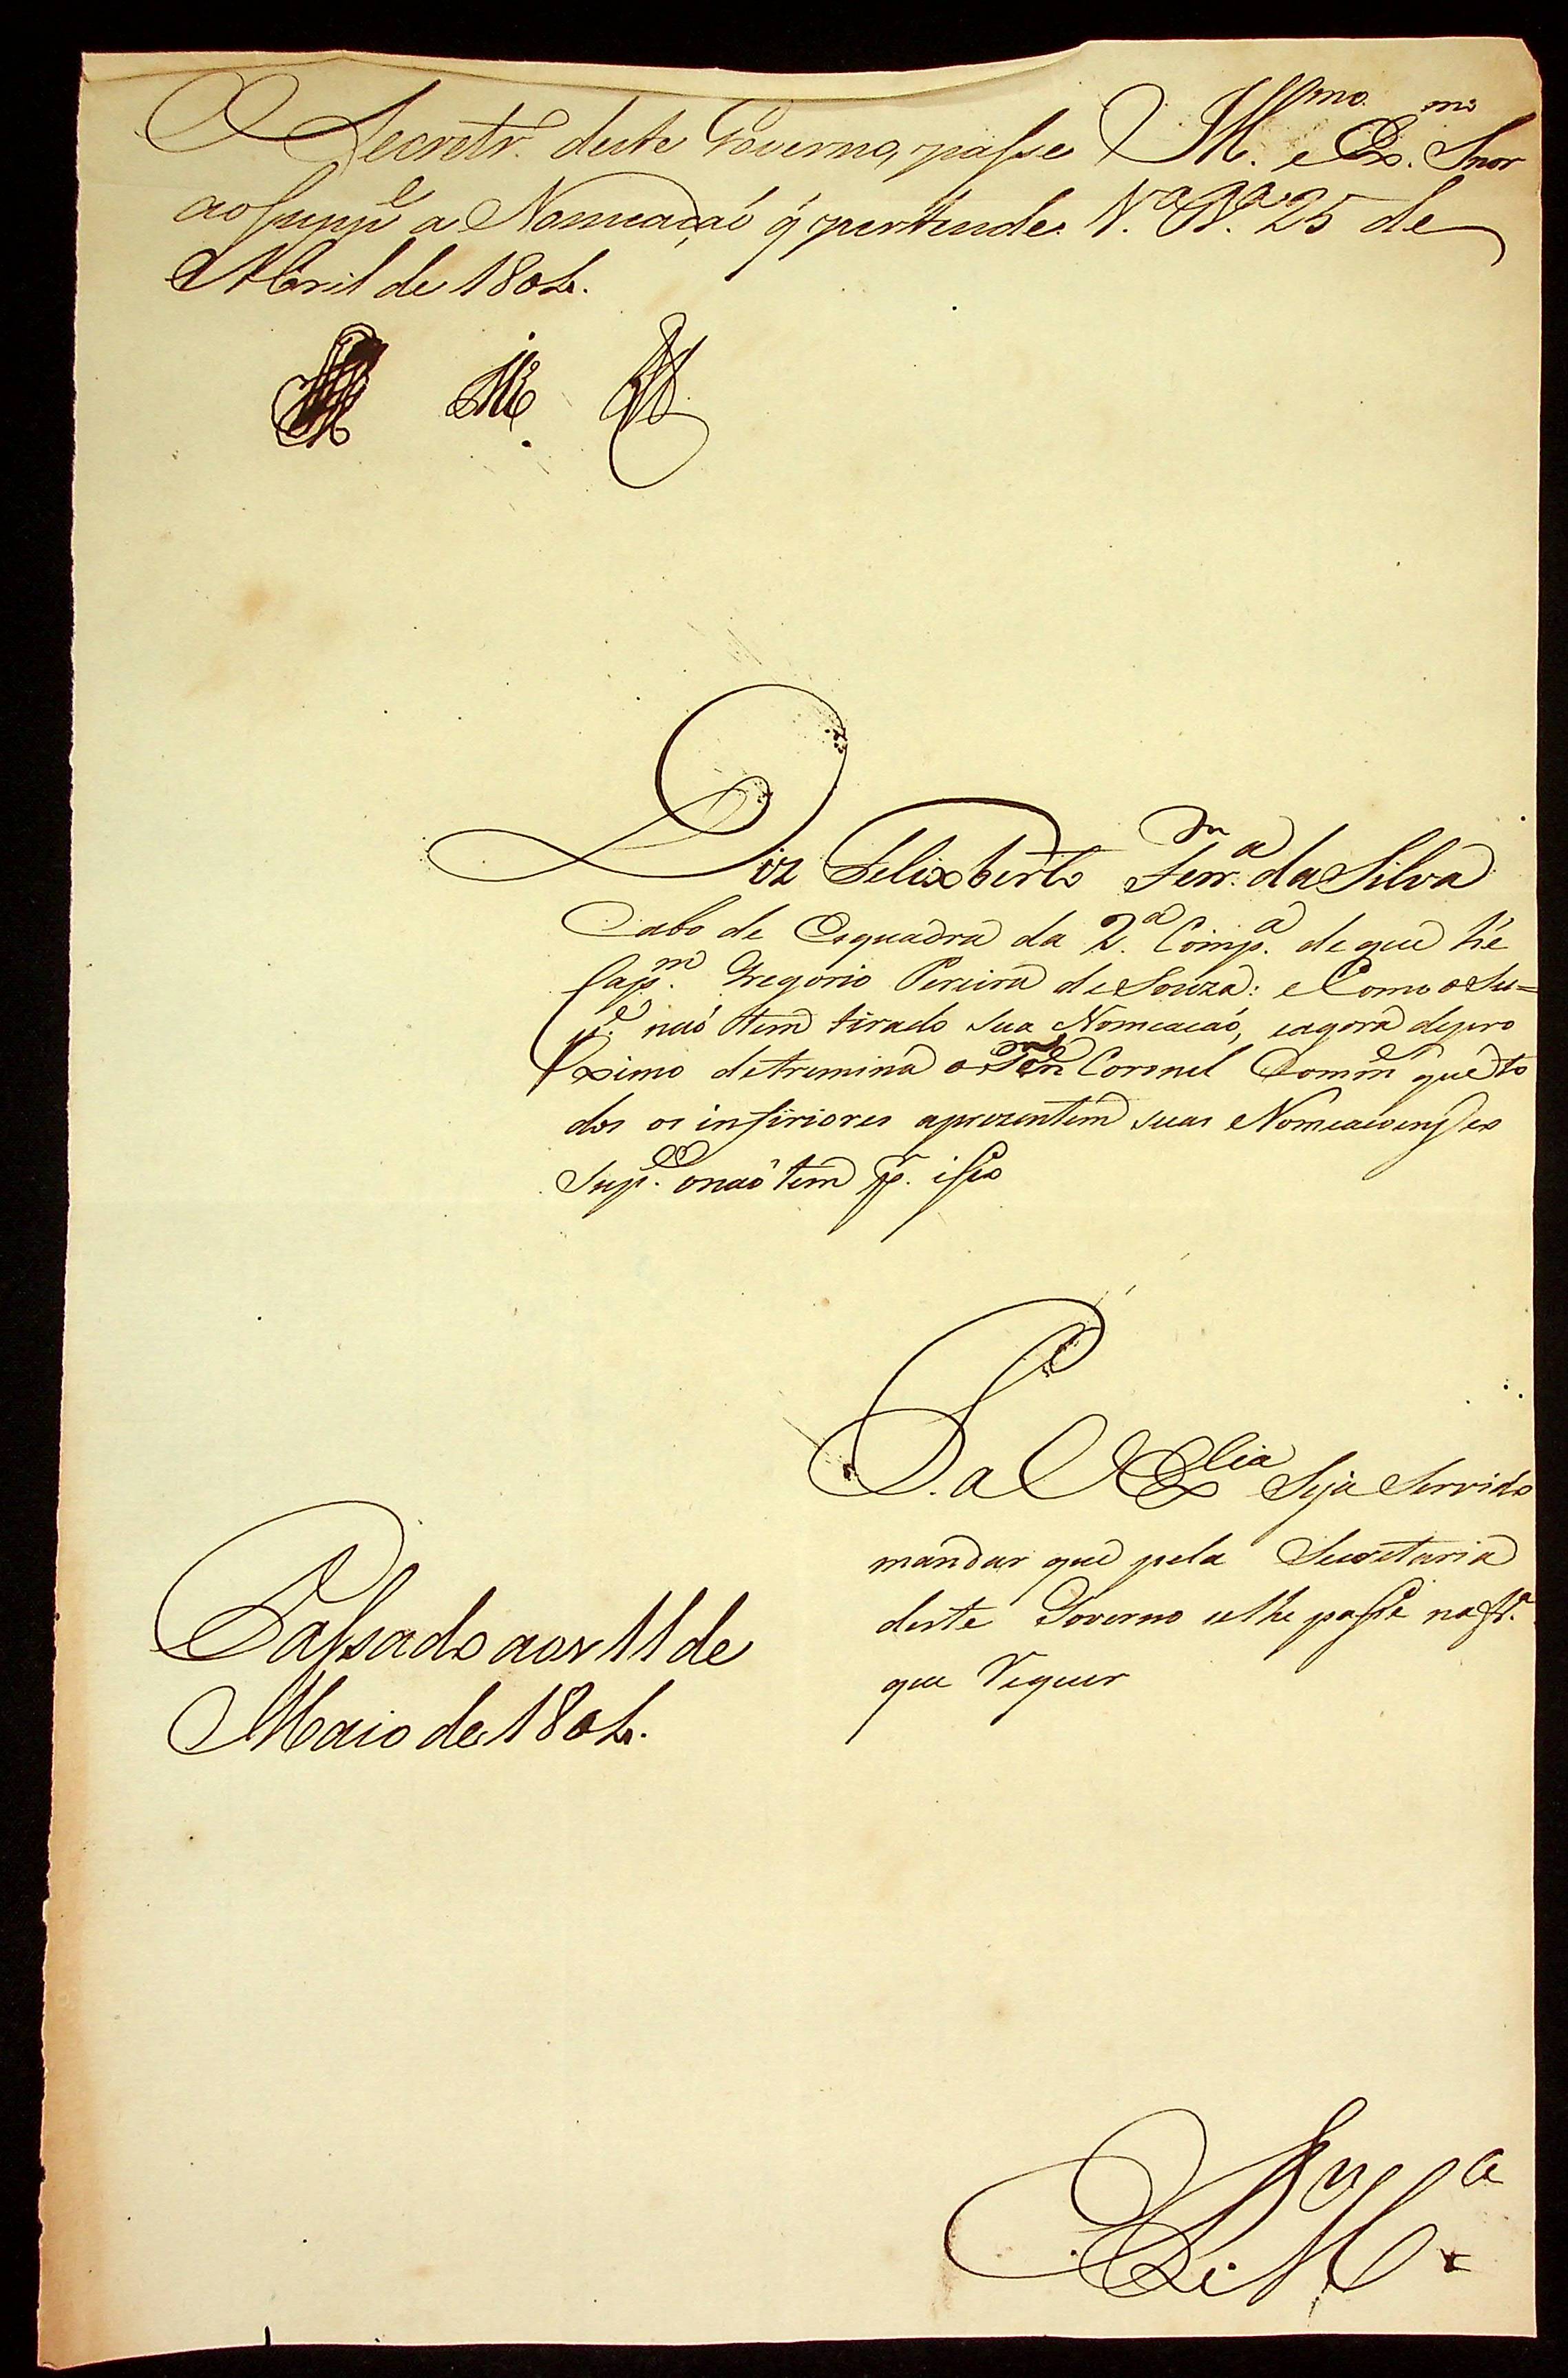 O Secretr.º deste Governo, passe
ao suppe a Nomeaçaõ q̃ pertende. N.a V.a 25 de
Abril de 1804.
Ill.mo e Ex.mo Snor
Diz Felixberto Ferr.a da Silva
Cabo de Esquadra da 2.a Comp.a de que hé
Cap.m Gregorio Pereira de Souza: e Como o Su=
p.e naó tem tirado sua Nomeacaó, e agora depro
ximo detremina o Ten.e Coronel Comm.e que to
dos os inferiores aprezentem suas Nomeacoens, e o
Sup.e o naó tem p.r isso
P. a V Ex.lia Seja Servido
mandar que pela Secretaria
deste Governo se lhe passe na fr.a
que Requer
Passado aos 11 de
Maio de 1804.
E R M.ce